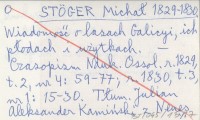 STÖGER Michał 1829-1830.
Wiadomość o lasach Galicyi, ich
płodach i użytkach. —
Czasopism Nauk. Ossol. r. 1829,
t. 2, nr 4: 59-77; r. 1830, t. 3,
nr 1: 15-30. Tłum. Julian
Aleksander Kamiński.